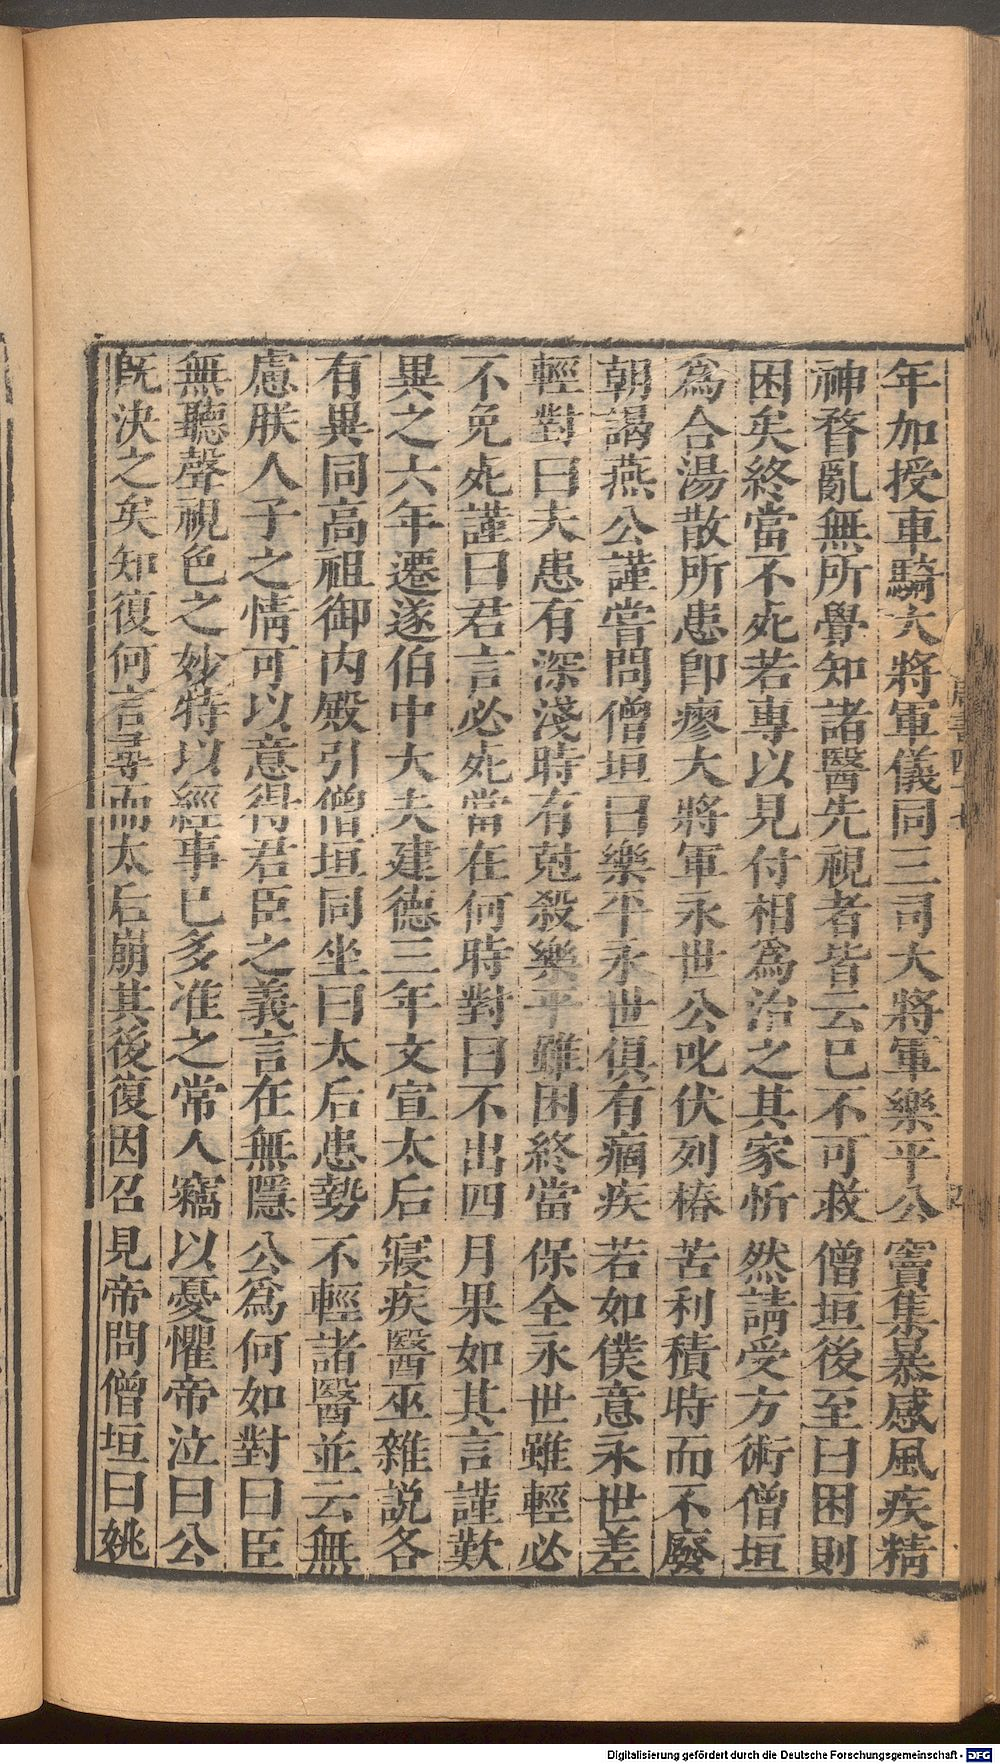 年加授車騎大將軍儀同三司大將軍樂平公竇集暴感風疾精
神瞀亂無所覺知諸醫先視者皆云已不可救僧垣後至曰困則
困矣終當不死若專以見付相爲治之其家忻然請受方術僧垣
爲合湯散所患卽瘳大將軍永世公叱伏列椿苦利積時而不廢
朝謁燕公謹嘗問僧垣曰樂平永世俱有痼疾若如僕意永世差
輕對曰夫患有深淺時有尅殺樂平雖困終當保全永世雖輕必
不免死謹曰君言必死當在何時對曰不出四月果如其言謹歎
異之六年遷遂伯中大夫建德三年文宣太后寢疾醫巫雜説各
有異同高祖御内殿引僧垣同坐曰太后患勢不輕諸醫並云無
慮朕人子之情可以意得君臣之義言在無隱公爲何如對曰臣
無聽聲視色之妙特以經事已多准之常人竊以憂懼帝泣曰公
旣決之矣知復何言尋而太后崩其後復因召見帝問僧垣曰姚
Digitalisierung gefördert durch die Deutsche Forschungsgemeinschaft - DFG